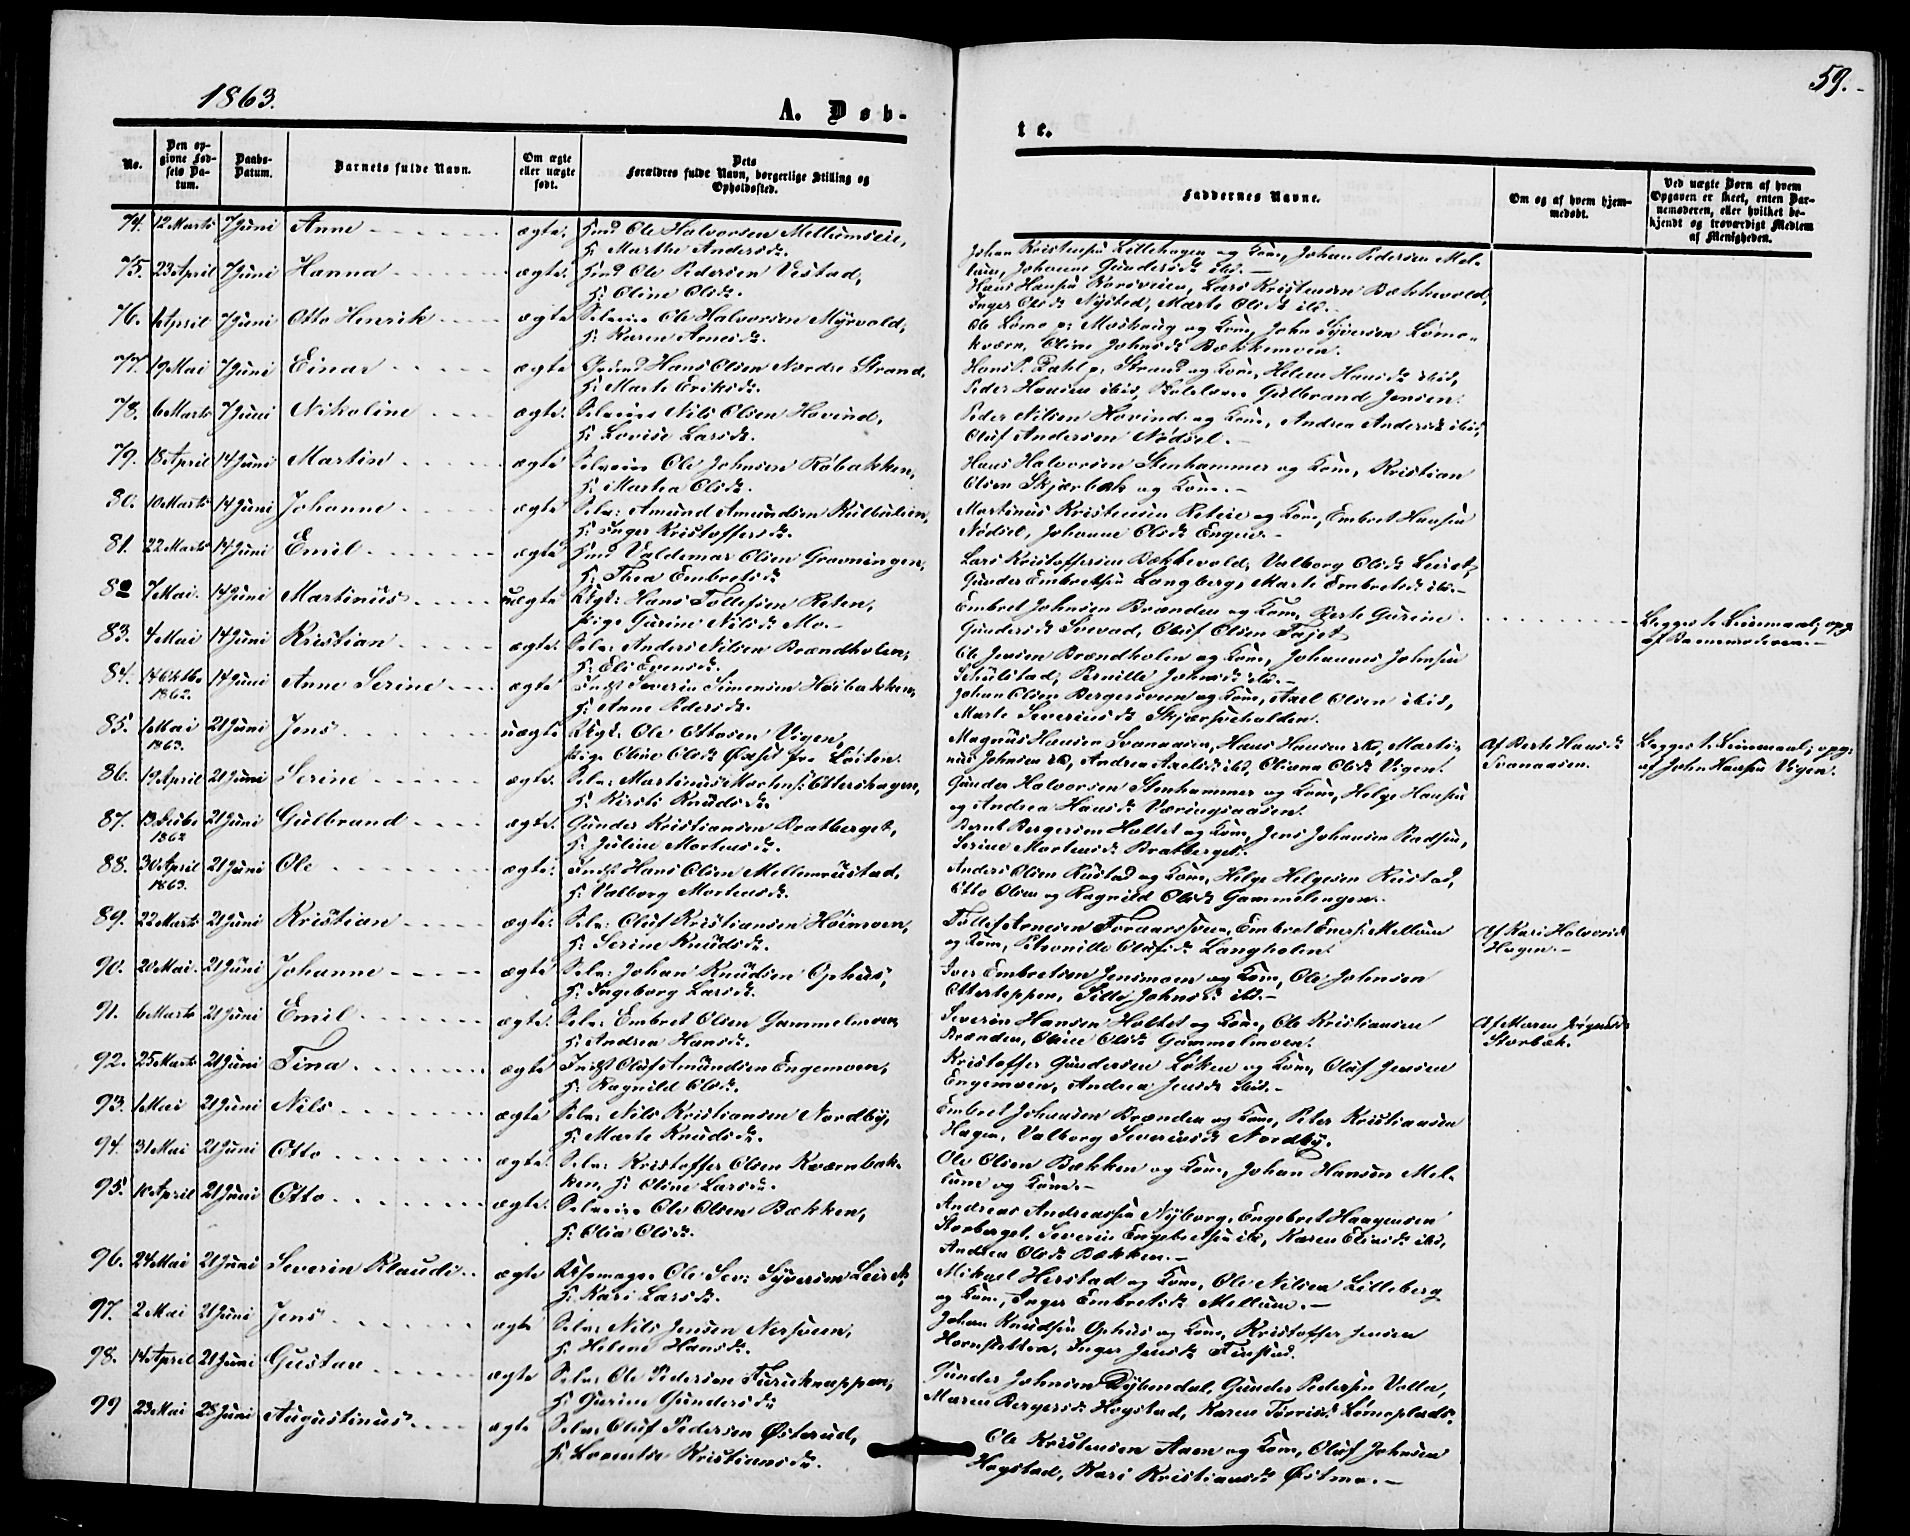 1863.
59.
A. Døb-
te.
No.
Den op-
givne Fød-
sels Da-
tum.
Daabs-
Datum.
Barnets fulde Navn.
Om ægte
eller uægte
født.
Dets
Forældres fulde Navn, borgerlige Stilling og
Opholdssted.
Faddernes Navne.
Om og af hvem hjem-
medøbt.
Ved uægte Børn af hvem
Opgaven er skeet, enten Bar-
nemoderen, eller hvilket be-
kjendt og troværdigt Medlem
af Menigheden.
74. 12 Marts 7 Juni Anne ægte. Ole Halvorsen Mellumseie,
H: Marthe Andersd.
Johan Kristensen Lillehagen og Kone, Johan Pedersen Mel-
lum, Johanne Gundersd ibd.
75. 23 April 7 Juni Hanna ægte. Ole Pedersen Vestad,
H: Oline Olsd.
Hans Hansen, Lars Kristensen Bækkevold,
Inger Olsd Nysted, Marte Olsd ibd.
76. 1 April 7 Juni Otto Henrik ægte Selveier Ole Halvorsen Myrvold,
H: Karen Arnesd.
Ole Lømo p: Moskaug og Kone, John Syversen Lømo-
kværn, Oline Johnsd Bækkemoen.
77. 19 Mai 7 Juni Einar ægte Hans Olsen Nordre Strand,
H: Marte Eriksd.
Hans P. Dahl p: Strand og Kone, Helene Hansd ibid,
Peder Hansen ibid, Gulbrand Jensen.
78. 6 Marts 7 Juni Nikoline ægte. Selveier Nils Olsen Hovind,
H: Lovise Larsd.
Peder Nilsen Hovind og Kone, Andrea Andersd ibid,
Oluf Andersen Nødsel.
79. 18 April 14 Juni Martin ægte Selveier Ole Johnsen Røbakken,
H: Martha Olsd.
Hans Halvorsen Stenhammer og Kone, Kristian
Olsen Skjærbæk og Kone.
80. 10 Marts 14 Juni Johanne ægte Selv: Amund Amundsen,
H: Inger Kristoffersd.
Martinus Kristensen og Kone, Embret Hansen
Nødsel, Johanne Olsd Engen.
81. 22 Marts 14 Juni Emil ægte Valdemar Olsen Grønningen,
H: Thea Embretsd
Lars Kristoffersen Bækkevold, Valborg Olsd Leiret,
Gunder Embretsen Langberg, Marte Embretsd ibd.
82 7 Mai. 14 Juni Martinus uægte Ungk: Hans Tollefsen Reten,
Pige Gurine Nilsd Mo.
Embret Johnsen Brænden og Kone, Berte Gurine
Gundersd Sorvad, Oluf Olsen Fajet
Begges 1ste Leiermaal; opg.
af Barnemoderen.
83. 4 Mai 14 Juni Kristian ægte. Selv: Anders Nilsen Brændholen,
H: Eli Evensd.
Ole Jensen Brændholen og Kone, Johannes Johnsen
Schulstad, Pernille Johnsd ibd.
84. 14 Oktbr. 1862. 14 Juni Anne Serine ægte Indst Severin Simensen Høibakken,
H: Anne Pedersd.
Johan Olsen Bergersveen og Kone, Axel Olsen ibid,
Marte Severinsd Skjærsveholden.
85. 1 Mai 1863. 21 Juni Jens uægte Ungk. Ole Ottosen Vigen,
Pige Oline Olsd fra Løiten.
Magnus Hansen Svenaasen, Hans Hansen ibd, Marti-
nus Johnsen ibd, Andrea Axelsd ibd, Oliana Olsd Vigen.
Af Berte Hansd
Svenaasen.
Begges 1. Leiermaal; opg:
af John Hansen Vigen.
86. 19 April 21 Juni Serine ægte. Selv: Martinus Mortens: Ottershagen,
H: Kirsti Knudsd.
Gunder Halvorsen Stenhammer og Kone, Helge Hansen
og Andrea Hansd Væringsaasen.
87. 13 Febr. 1862 21 Juni Gulbrand ægte. Gunder Kristiansen Bratberget,
H: Juline Mortensd.
Bernt Bergersen Holtet og Kone, Jens Johansen,
Serine Mortensd Bratberget.
88. 30 April 1863. 21 Juni Ole ægte. Indst: Hans Olsen Mellemrustad,
H: Valborg Mortensd.
Anders Olsen Rustad og Kone, Helge Helgesen Rustad,
Otto Olsen og Ragnild Olsd Gammelengen.
89. 22 Marts 21 Juni Kristian ægte. Selv: Oluf Kristiansen Høimoen,
H: Serine Knudsd.
Tollef Arnesen, Embret Mellum
og Kone, Petronille Olufsd Langholen.
Af Kari Halvorsd
Hagen.
90. 20 Mai. 21 Juni Johanne ægte Selv: Johan Knudsen Ophus,
H: Ingeborg Larsd.
Iver Embretsen Jensmoen og Kone, Ole Johnsen
Otterteppen, Sille Johnsd ibd.
91. 6 Marts 21 Juni Emil ægte. Selv: Embret Olsen Gammelmoen,
H: Andrea Hansd.
Severin Hansen Holtet og Kone, Ole Kristiansen
Brænden, Oline Olsd Gammelmoen.
Af Maren
Storbæk.
92. 25 Marts 21 Juni Tina ægte Indst Oluf Amundsen Engemoen,
H: Ragnild Olsd.
Kristoffer Gundersen Løken og Kone, Oluf Jensen
Engemoen, Andrea Jensd ibd.
93. 1 Mai 21 Juni Nils ægte Selv: Nils Kristiansen Nordby,
H: Marte Knudsd.
Embret Johansen Brænden og Kone, Peter Kristiansen
Hagen, Valborg Severinsd Nordby.
94. 31 Mai 21 Juni Otto ægte. Selv: Kristoffer Olsen Kværnbæk-
ken, H: Oline Larsd.
Ole Olsen Bækken og Kone, Johan Hansen Mel-
lum og Kone.
95. 10 April 21 Juni Otto ægte. Selveier Ole Olsen Bækken,
H: Olia Olsd.
Andreas Andreassen Nyborg, Engebret Haagensen
Storberget, Severin Engebretsen ibd, Karen Eliasd ibd,
Andrea Olsd Bækken.
96. 24 Mai 21 Juni Severin Klaudi ægte Ole Sev: Syversen Leiret,
H: Kari Larsd.
Mikael Herstad og Kone, Ole Nilsen Lilleberg
og Kone, Inger Embretsd Mellum.
97. 2 Mai 21 Juni Jens ægte Selv: Nils Jensen Nersveen,
H: Helene Hansd.
Johan Knudsen Ophus og Kone, Kristoffer Jensen
Hornstetten, Inger Jensd Finstad.
98. 14 April 21 Juni Gustav ægte Selv: Ole Pedersen Furuknappen,
H: Gurine Gundersd
Gunder Johnsen Dybendal, Gunder Pedersen Volla,
Maren Bergersd Hogstad, Karen Lømoplads.
99 23 Mai 28 Juni Augustinus ægte Selv: Oluf Pedersen Østerud,
H: Lorentse Kristiansd.
Ole Kristensen Aaen og Kone, Oluf Johnsen
Hogstad, Kari Kristiansd Østmo.